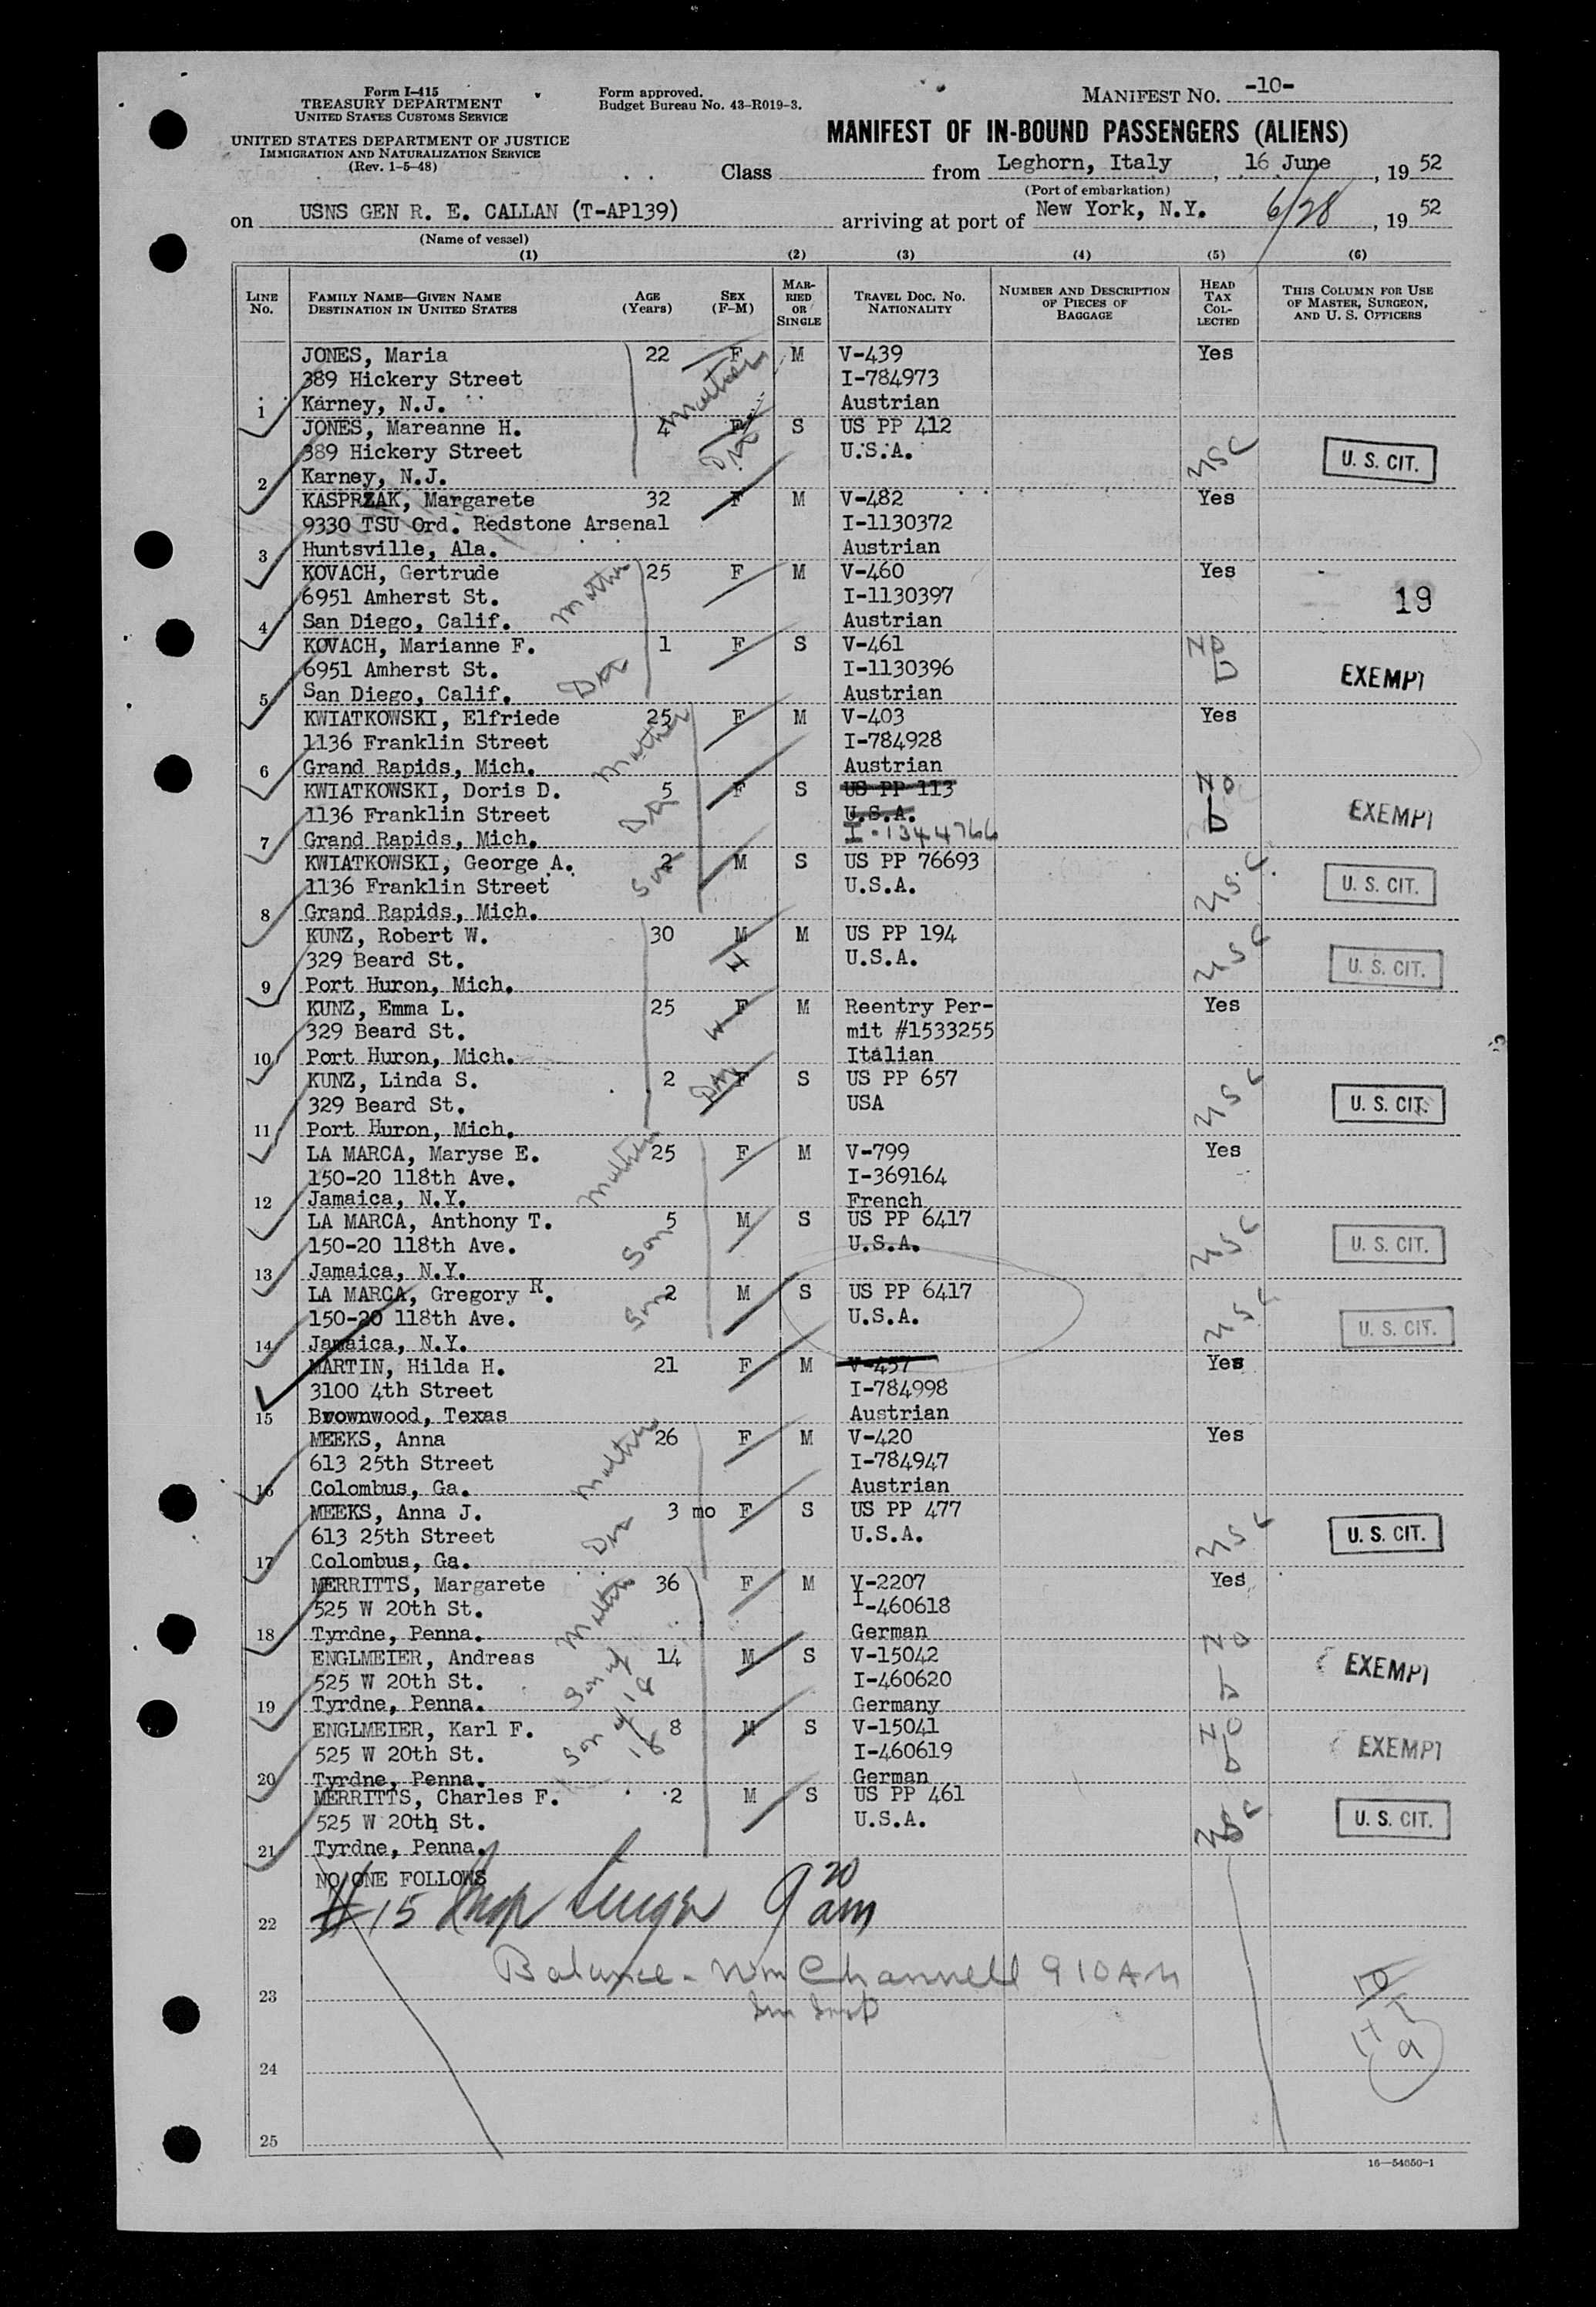 Form I-415
TREASURY DEPARTMENT
UNITED STATES CUSTOMS SERVICE
UNITED STATES DEPARTMENT OF JUSTICE
IMMIGRATION AND NATURALIZATION SERVICE
(Rev. 1-5-48)
Form approved.
Budget Bureau No. 43-R019-3.
MANIFEST NO. -10-
MANIFEST OF IN-BOUND PASSENGERS (ALIENS)
Class from Leghorn, Italy, 16 June, 1952
(Port of embarkation)
on USNS GEN R. E. CALLAN (T-AP139) arriving at port of New York, N.Y. 6/28, 1952
(Name of vessel)
(1) (2) (3) (4) (5) (6)
LINE No. FAMILY NAME—GIVEN NAME DESTINATION IN UNITED STATES AGE (Years) SEX (F-M) MARRIED OR SINGLE TRAVEL DOC. NO. NATIONALITY NUMBER AND DESCRIPTION OF PIECES OF BAGGAGE HEAD TAX COLLECTED THIS COLUMN FOR USE OF MASTER, SURGEON, AND U. S. OFFICERS
JONES, Maria 22 F Mother M V-439 Yes
389 Hickery Street I-784973
1 Karney, N.J. Austrian
JONES, Mareanne H. 4 F Dtr S US PP 412 USC
389 Hickery Street U.S.A. U. S. CIT.
2 Karney, N.J.
KASPRZAK, Margarete 32 F M V-482 Yes
9330 TSU Ord. Redstone Arsenal I-1130372
3 Huntsville, Ala. Austrian
KOVACH, Gertrude Mother 25 F M V-460 Yes
6951 Amherst St. I-1130397 19
4 San Diego, Calif. Austrian
KOVACH, Marianne F. Dtr 1 F S V-461 No
6951 Amherst St. I-1130396 D EXEMPT
5 San Diego, Calif. Austrian
KWIATKOWSKI, Elfriede Mother 25 F M V-403 Yes
1136 Franklin Street I-784928
6 Grand Rapids, Mich. Austrian
KWIATKOWSKI, Doris D. Dtr 5 F S US PP 113 No
1136 Franklin Street U.S.A. D EXEMPT
7 Grand Rapids, Mich. I-1344766
KWIATKOWSKI, George A. Son 2 M S US PP 76693 USC
1136 Franklin Street U.S.A. U. S. CIT.
8 Grand Rapids, Mich.
KUNZ, Robert W. 30 M M US PP 194 USC
329 Beard St. H U.S.A. U. S. CIT.
9 Port Huron, Mich.
KUNZ, Emma L. 25 F M Reentry Per- Yes
329 Beard St. W mit #1533255
10 Port Huron, Mich. Italian
KUNZ, Linda S. 2 F Dtr S US PP 657 USC
329 Beard St. USA U. S. CIT.
11 Port Huron, Mich.
LA MARCA, Maryse E. Mother 25 F M V-799 Yes
150-20 118th Ave. I-369164
12 Jamaica, N.Y. French
LA MARCA, Anthony T. Son 5 M S US PP 6417 USC
150-20 118th Ave. U.S.A. U. S. CIT.
13 Jamaica, N.Y.
LA MARCA, Gregory R. Son 2 M S US PP 6417 USC
150-20 118th Ave. U.S.A. U. S. CIT.
14 Jamaica, N.Y.
MARTIN, Hilda H. 21 F M V-457 Yes
3100 4th Street I-784998
15 Brownwood, Texas Austrian
MEEKS, Anna Mother 26 F M V-420 Yes
613 25th Street I-784947
16 Colombus, Ga. Austrian
MEEKS, Anna J. Dtr 3 mo F S US PP 477 USC
613 25th Street U.S.A. U. S. CIT.
17 Colombus, Ga.
MERRITTS, Margarete Mother 36 F M V-2207 Yes
525 W 20th St. I-460618
18 Tyrdne, Penna. German
ENGLMEIER, Andreas Son of 18 14 M S V-15042 No
525 W 20th St. I-460620 D EXEMPT
19 Tyrdne, Penna. Germany
ENGLMEIER, Karl F. Son of 18 8 M S V-15041 No
525 W 20th St. I-460619 D EXEMPT
20 Tyrdne, Penna. German
MERRITTS, Charles F. 2 M S US PP 461 USC
525 W 20th St. U.S.A. U. S. CIT.
21 Tyrdne, Penna.
NO ONE FOLLOWS
22 #15 Insp 9 20 am
Balance - Wm Channell 9 10 AM
23 Im Insp
24
25
16—54650-1